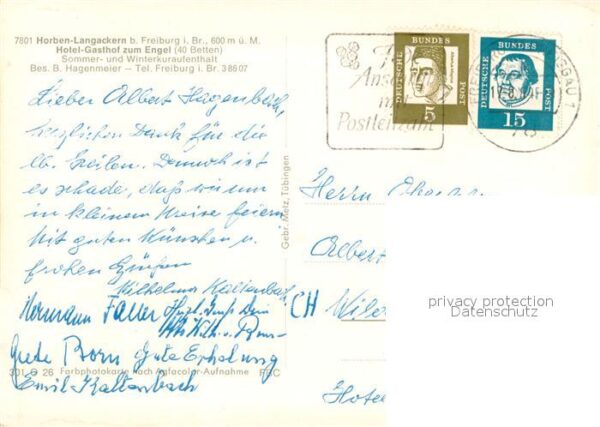 7801 Horben-Langackern b. Freiburg i. Br., 600 m ü. M.
Hotel-Gasthof zum Engel (40 Betten)
Sommer- und Winterkuraufenthalt
Bes. B. Hagenmeier — Tel. Freiburg i. Br. 38607
Lieber Albert Hagenbuch,
herzlichen Dank für die
lb. Zeilen. Dennoch ist
es schade, daß wir nur
in kleinem Kreise feiern
Mit guten Wünschen u.
frohen Grüßen
Wilhelmine Kaltenbach
Hermann Faller Herzl. Gruß Dein
Grete Born Gute Erholung
Emil Kaltenbach
301 G 26 Farbphotokarte nach Agfacolor-Aufnahme FBC
Gebr. Metz, Tübingen
Postleitzahl
DEUTSCHE
BUNDES
POST
5
DEUTSCHE
BUNDES
POST
15
Herrn
Albert
CH
Hote
privacy protection
Datenschutz